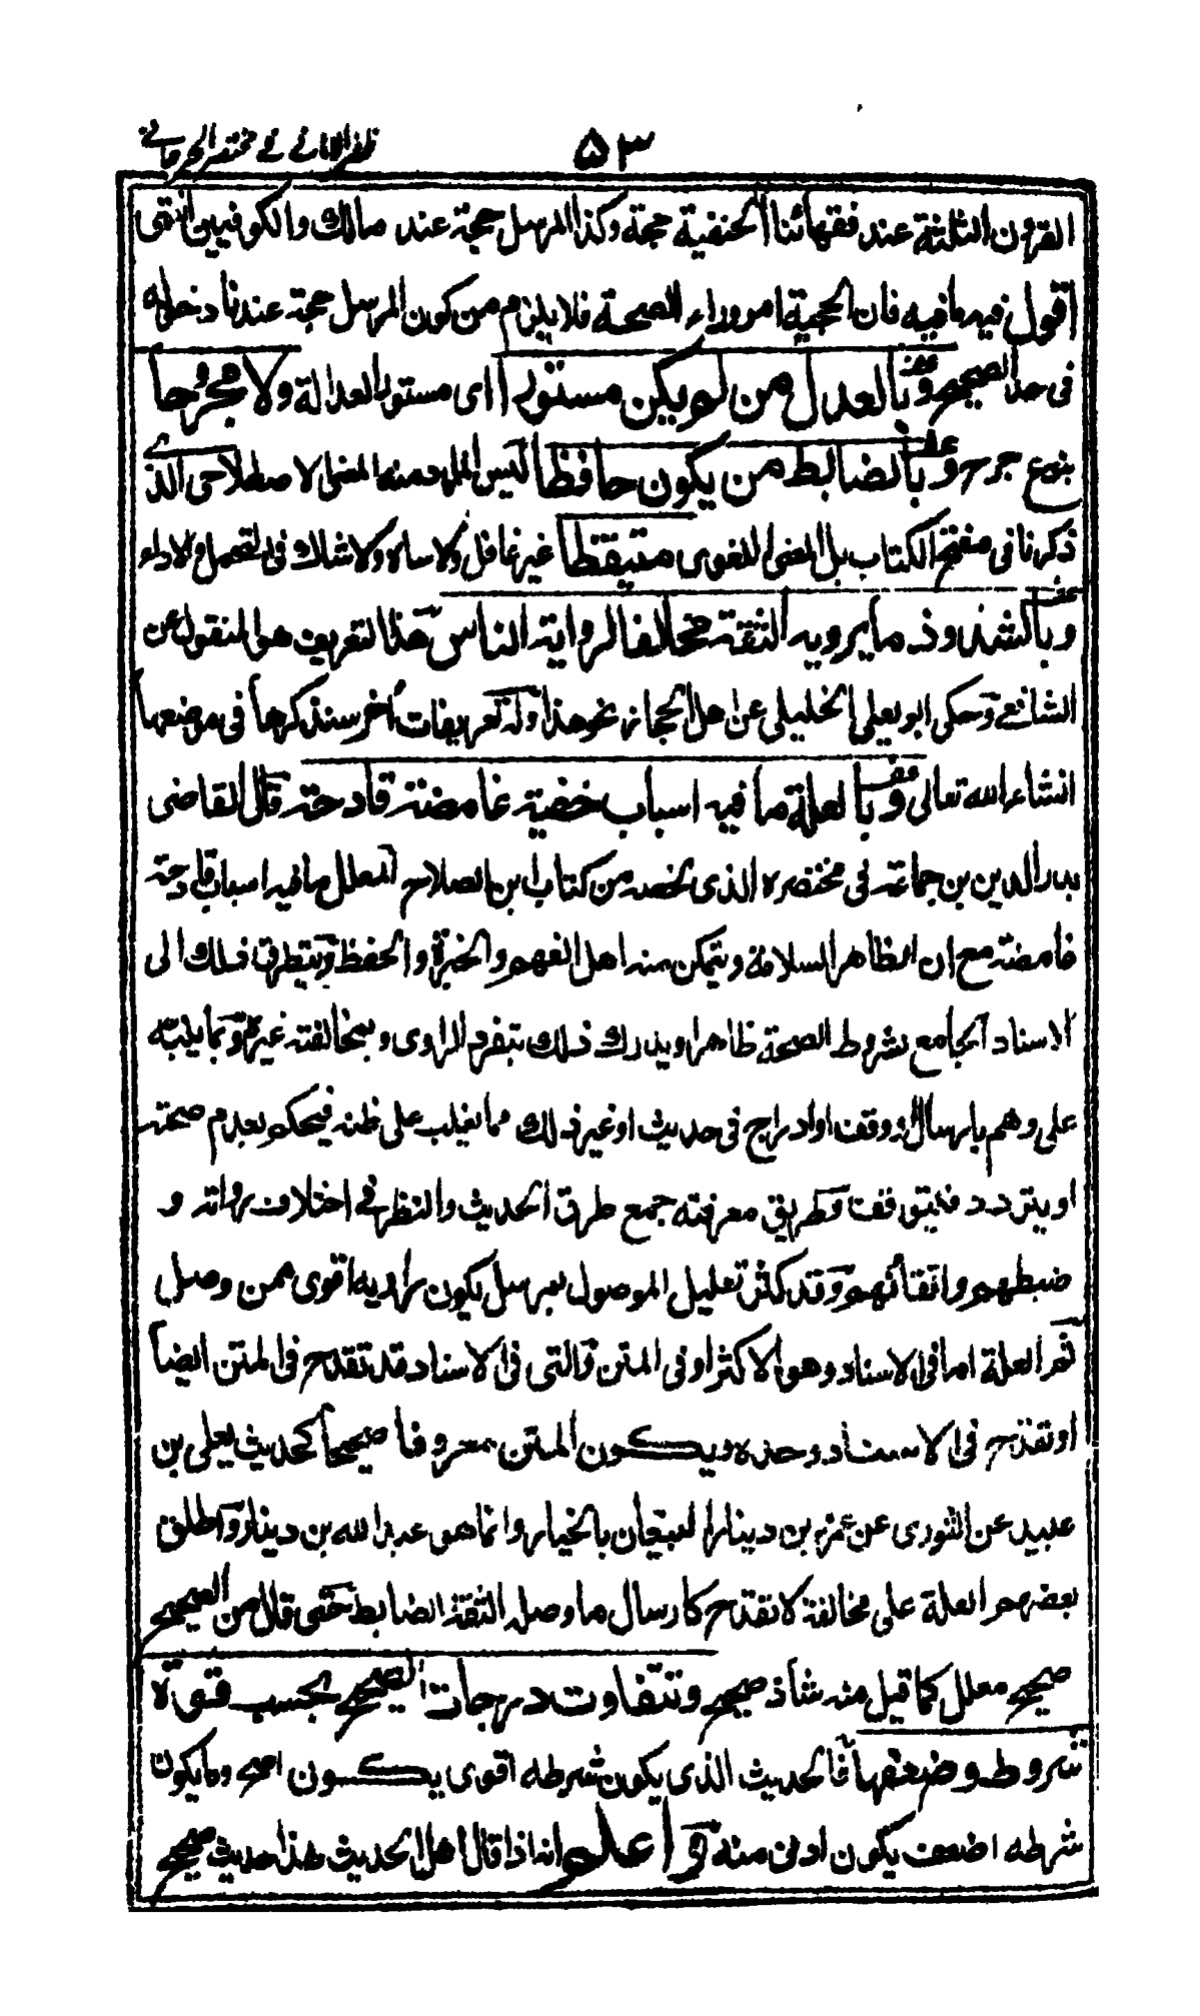 ٥٣ ظفر الامانے فے مختصر الجرجانے
القرون الثلثة عند فقهائنا الحنفية حجة وكذا المرسل حجة عند مالك والكوفيين انتهى
اقول فيه مافيه فان الحجية امر وراء الصحة فلا يلزم من كون المرسل حجة عندنا دخوله
فى حد الصحيح ونعنى بالعدل من لم يكن مستورا اى مستور العدالة ولا مجروحا
بنوع جرح ونعنى بالضابط من يكون حافظا ليس المراد منه المعنى الاصطلاحى الذى
ذكرنا فى مفتتح الكتاب بل المعنى اللغوى متيقظا غير غافل ولا ساه ولا شاك فى التحمل والاداء
ونعنى بالشذوذ ما يرويه الثقة مخالفا لرواية الناس هذا التعريف هو المنقول عن
الشافعے وحكى ابو يعلى الخليلى عن اهل الحجاز نحو هذا وله تعريفات أخر سنذكرها فى موضعها
انشاء الله تعالى ونعنى بالعلة ما فيه اسباب خفية غامضة قادحة قال القاضى
بدر الدين بن جماعة فى مختصره الذى لخصه من كتاب ابن الصلاح المعلل ما فيه اسباب قادحة
غامضة مع ان الظاهر السلامة ويتمكن منه اهل الفهم والخبرة والحفظ ويتطرق ذلك الى
الاسناد الجامع بشروط الصحة ظاهرا ويدرك ذلك بتفرد الراوى وبمخالفته غيره وبما ينبه
على وهم بارسال او وقف او ادراج فى حديث او غير ذلك مما يغلب على ظنه فيحكم بعدم صحته
او يتردد فيتوقف وطريق معرفته جمع طرق الحديث والنظر فے اختلاف رواته و
ضبطهم واتقانهم وقد كثر تعليل الموصول بمرسل يكون راويه اقوى ممن وصل
ثم العلة اما فى الاسناد وهو الاكثر او فى المتن والتى فى الاسناد قد تقدح فى المتن ايضا
او تقدح فى الاسناد وحده ويكون المتن معروفا صحيحا كحديث يعلى بن
عبيد عن الثورى عن عمرو بن دينار البيعان بالخيار وانما هو عبد الله بن دينار واطلق
بعضهم العلة على مخالفة لا تقدح كارسال ما وصله الثقة الضابط حتى قال من الصحيح
صحيح معلل كما قيل منه شاذ صحيح وتتفاوت درجات الصحيح بحسب قوة
شروطه وضعفها فالحديث الذى يكون شرطه اقوى يكون اصح وما يكون
شرطه اضعف يكون ادنى منه واعلم انه اذا قال اهل الحديث هذا حديث صحيح